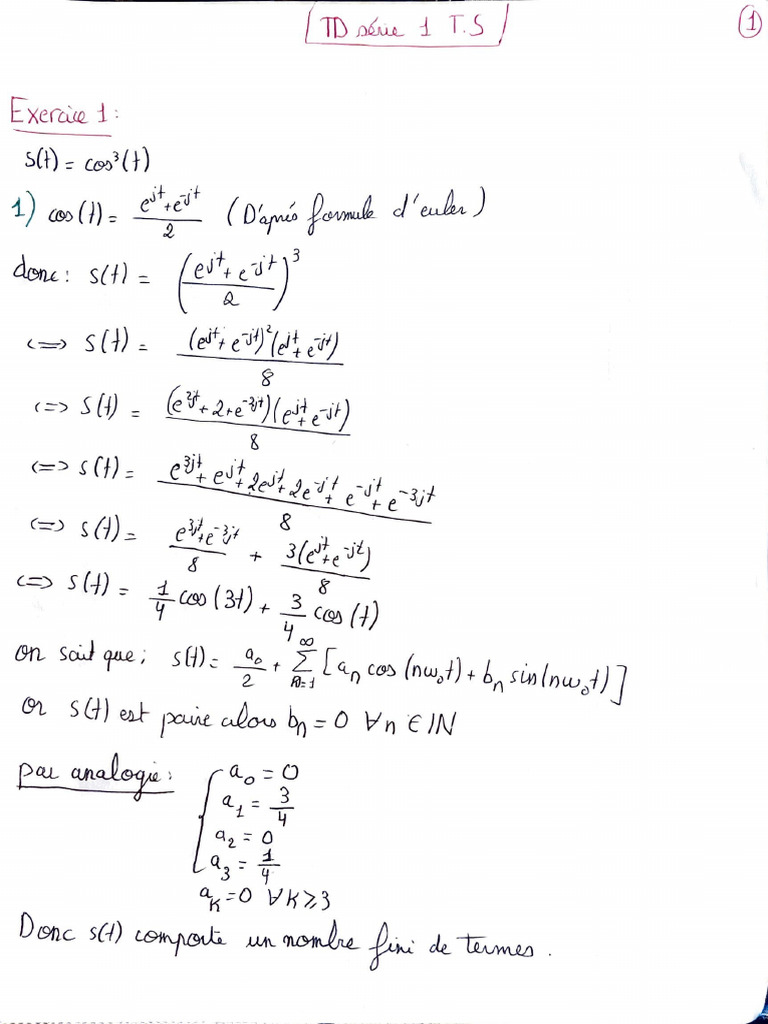 TD série 1 T.S
1
Exercice 1:
s(t) = cos³(t)
1) cos(t) = (e^{jt} + e^{-jt})/2 (D'après formule d'euler)
donc: s(t) = ((e^{jt} + e^{-jt})/2)³
<=> s(t) = (e^{jt} + e^{-jt})²(e^{jt} + e^{-jt})/8
<=> s(t) = (e^{2jt} + 2 + e^{-2jt})(e^{jt} + e^{-jt})/8
<=> s(t) = (e^{3jt} + e^{jt} + 2e^{jt} + 2e^{-jt} + e^{-jt} + e^{-3jt})/8
<=> s(t) = (e^{3jt} + e^{-3jt})/8 + 3(e^{jt} + e^{-jt})/8
<=> s(t) = 1/4 cos(3t) + 3/4 cos(t)
on sait que; s(t) = a₀/2 + Σ_{n=1}^{∞} [aₙ cos(nω₀t) + bₙ sin(nω₀t)]
or s(t) est paire alors bₙ = 0 ∀n ∈ IN
par analogie: { a₀ = 0
a₁ = 3/4
a₂ = 0
a₃ = 1/4
a_K = 0 ∀K ⩾ 3
Donc s(t) comporte un nombre fini de termes.